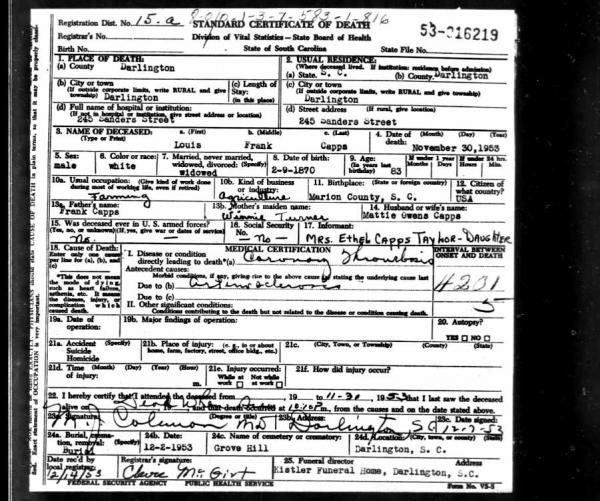 Registration Dist. No. 15-a
STANDARD CERTIFICATE OF DEATH
53-016219
Registrar's No.
Division of Vital Statistics—State Board of Health
Birth No.
State of South Carolina
State File No.
1. PLACE OF DEATH:
(a) County Darlington
2. USUAL RESIDENCE:
(Where deceased lived. If institution: residence before admission)
(a) State. S. C. (b) County. Darlington
(b) City or town
(If outside corporate limits, write RURAL and give township)
Darlington
(c) Length of Stay:
(in this place)
(c) City or town
(If outside corporate limits, write RURAL and give township)
Darlington
(d) Full name of hospital or institution:
(If not in hospital or institution, give street address or location)
245 Sanders Street
(d) Street address (If rural, give location)
245 Sanders Street
3. NAME OF DECEASED:
(Type or Print)
a. (First) b. (Middle) c. (Last)
Louis Frank Capps
4. Date of death: (Month) (Day) (Year)
November 30, 1953
5. Sex:
male
6. Color or race:
white
7. Married, never married, widowed, divorced: (Specify)
widowed
8. Date of birth:
2-9-1870
9. Age:
(In years last birthday)
83
If under 1 year
Months Days
If under 24 hrs.
Hours Min.
10a. Usual occupation: (Give kind of work done during most of working life, even if retired)
Farming
10b. Kind of business or industry:
Agriculture
11. Birthplace: (State or foreign country)
Marion County, S. C.
12. Citizen of what country?
USA
13a. Father's name
Frank Capps
13b. Mother's maiden name:
Winnie Turner
14. Husband's or wife's name:
Mattie Owens Capps
15. Was deceased ever in U. S. armed forces?
(Yes, no, or unknown) (If yes, give war or dates of service)
No. —
16. Social Security No.
— No —
17. Informant:
MRS. ETHEL CAPPS TAYLOR - DAUGHTER
18. Cause of Death:
Enter only one cause per line for (a), (b), and (c)
MEDICAL CERTIFICATION
INTERVAL BETWEEN ONSET AND DEATH
I. Disease or condition directly leading to death* (a) Coronary Thrombosis
Antecedent causes:
Morbid conditions, if any, giving rise to the above cause stating the underlying cause last
*This does not mean the mode of dying, such as heart failure, asthenia, etc. It means the disease, injury, or complication which caused death.
Due to (b) arteriosclerosis
4201
5
Due to (c)
II. Other significant conditions:
Conditions contributing to the death but not related to the disease or condition causing death.
19a. Date of operation:
19b. Major findings of operation:
20. Autopsy?
YES NO
21a. Accident Suicide Homicide (Specify)
21b. Place of injury: (e. g., in or about home, farm, factory, street, office bldg., etc.)
21c. (City, Town, or Township) (County) (State)
21d. Time of injury. (Month) (Day) (Year) (Hour) m.
21e. Injury occurred:
While at work Not while at work
21f. How did injury occur?
22. I hereby certify that I attended the deceased from 19 to 11-30, 1953 that I last saw the deceased
alive on and that death occurred at m., from the causes and on the date stated above.
23a. Signature: (Degree or title)
Coleman MD
23b. Address
Darlington SC
23c. Date signed:
12-2-53
24a. Burial, cremation, removal:
Burial
24b. Date:
12-2-1953
24c. Name of cemetery or crematory:
Grove Hill
24d. Location: (City, town, or county) (State)
Darlington, S. C.
Date rec'd by local registrar:
Registrar's signature:
25. Funeral director
Kistler Funeral Home, Darlington, S.C.
FEDERAL SECURITY AGENCY PUBLIC HEALTH SERVICE
Form No. VS-5